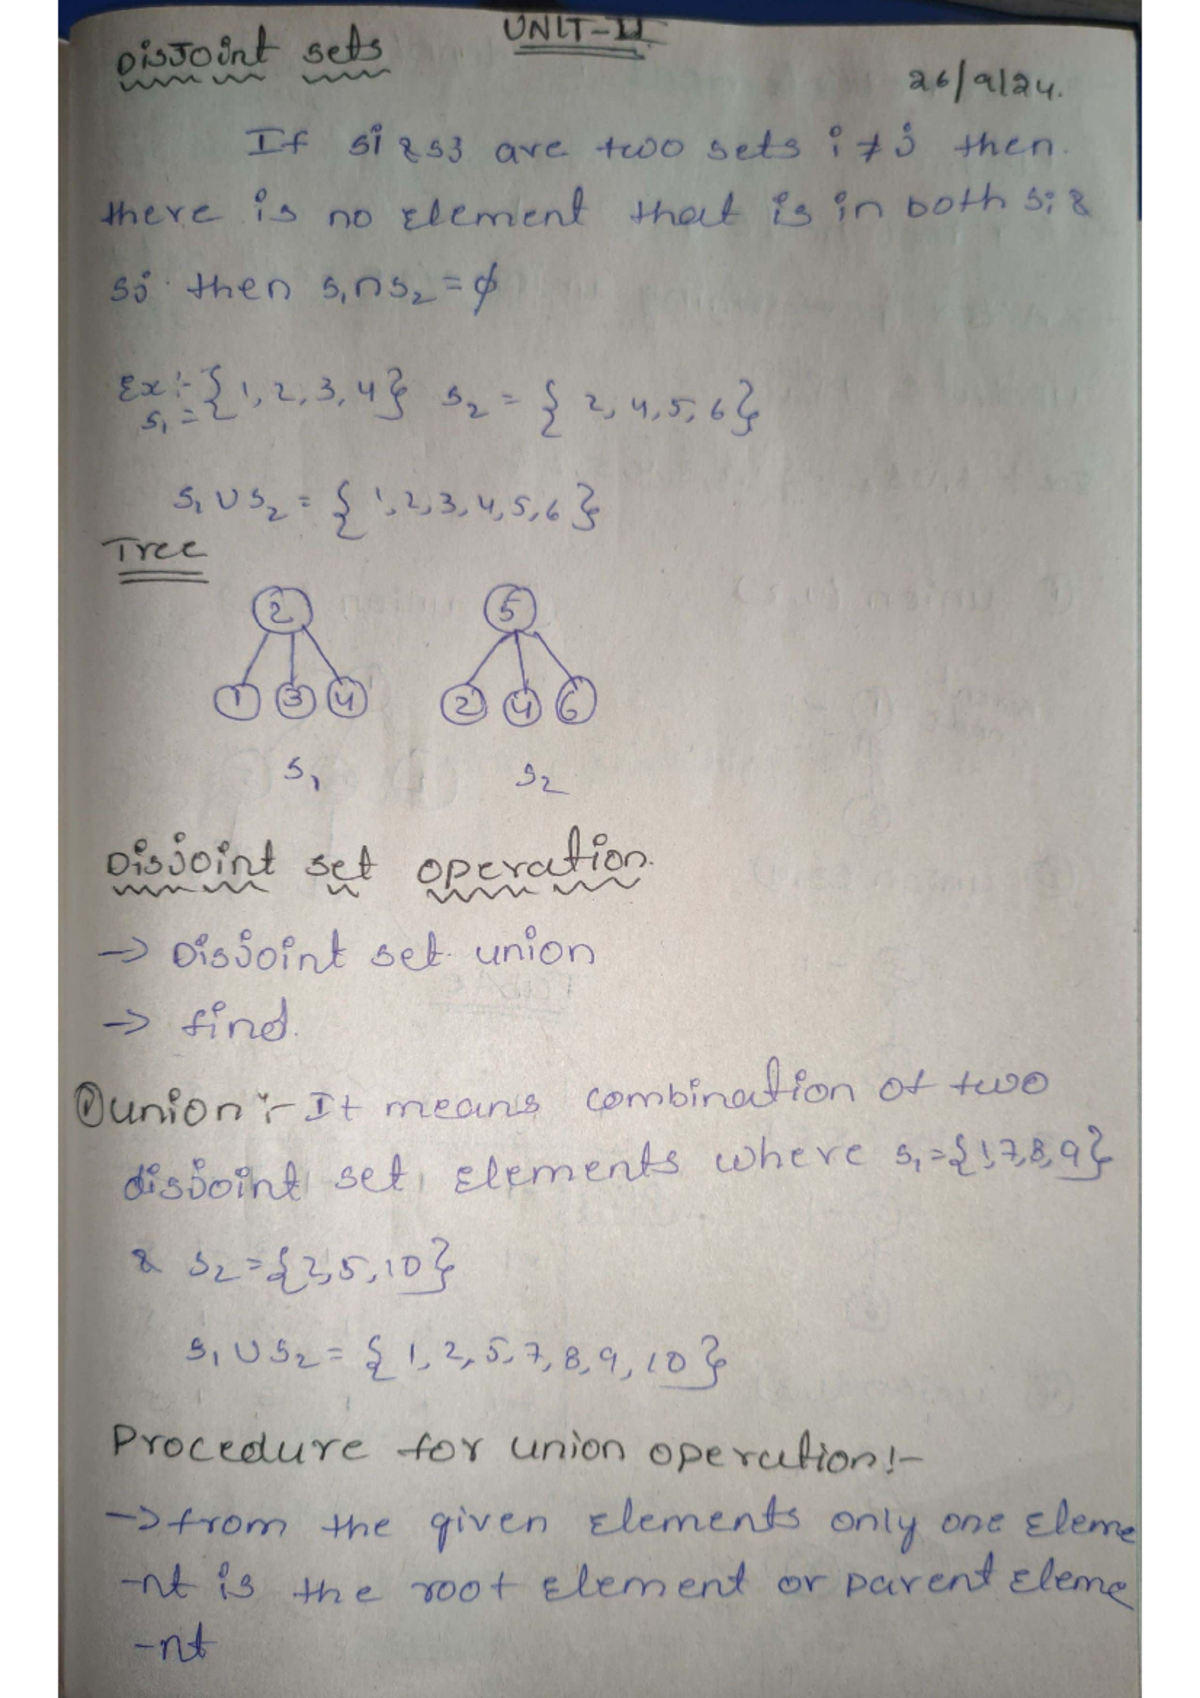 UNIT-II
Disjoint sets
26/9/24.
If si & sj are two sets i ≠ j then
there is no element that is in both si &
sj then s₁∩s₂ = ϕ
Ex:- s₁ = {1,2,3,4} s₂ = {2,4,5,6}
s₁∪s₂ = {1,2,3,4,5,6}
Tree
2 5
1 3 4 2 4 6
s₁ s₂
Disjoint set operation.
→ Disjoint set union
→ find.
① union :- It means combination of two
disjoint set elements where s₁={1,7,8,9}
& s₂={2,5,10}
s₁∪s₂ = {1,2,5,7,8,9,10}
Procedure for union operation:-
→ from the given elements only one eleme
-nt is the root element or parent eleme
-nt